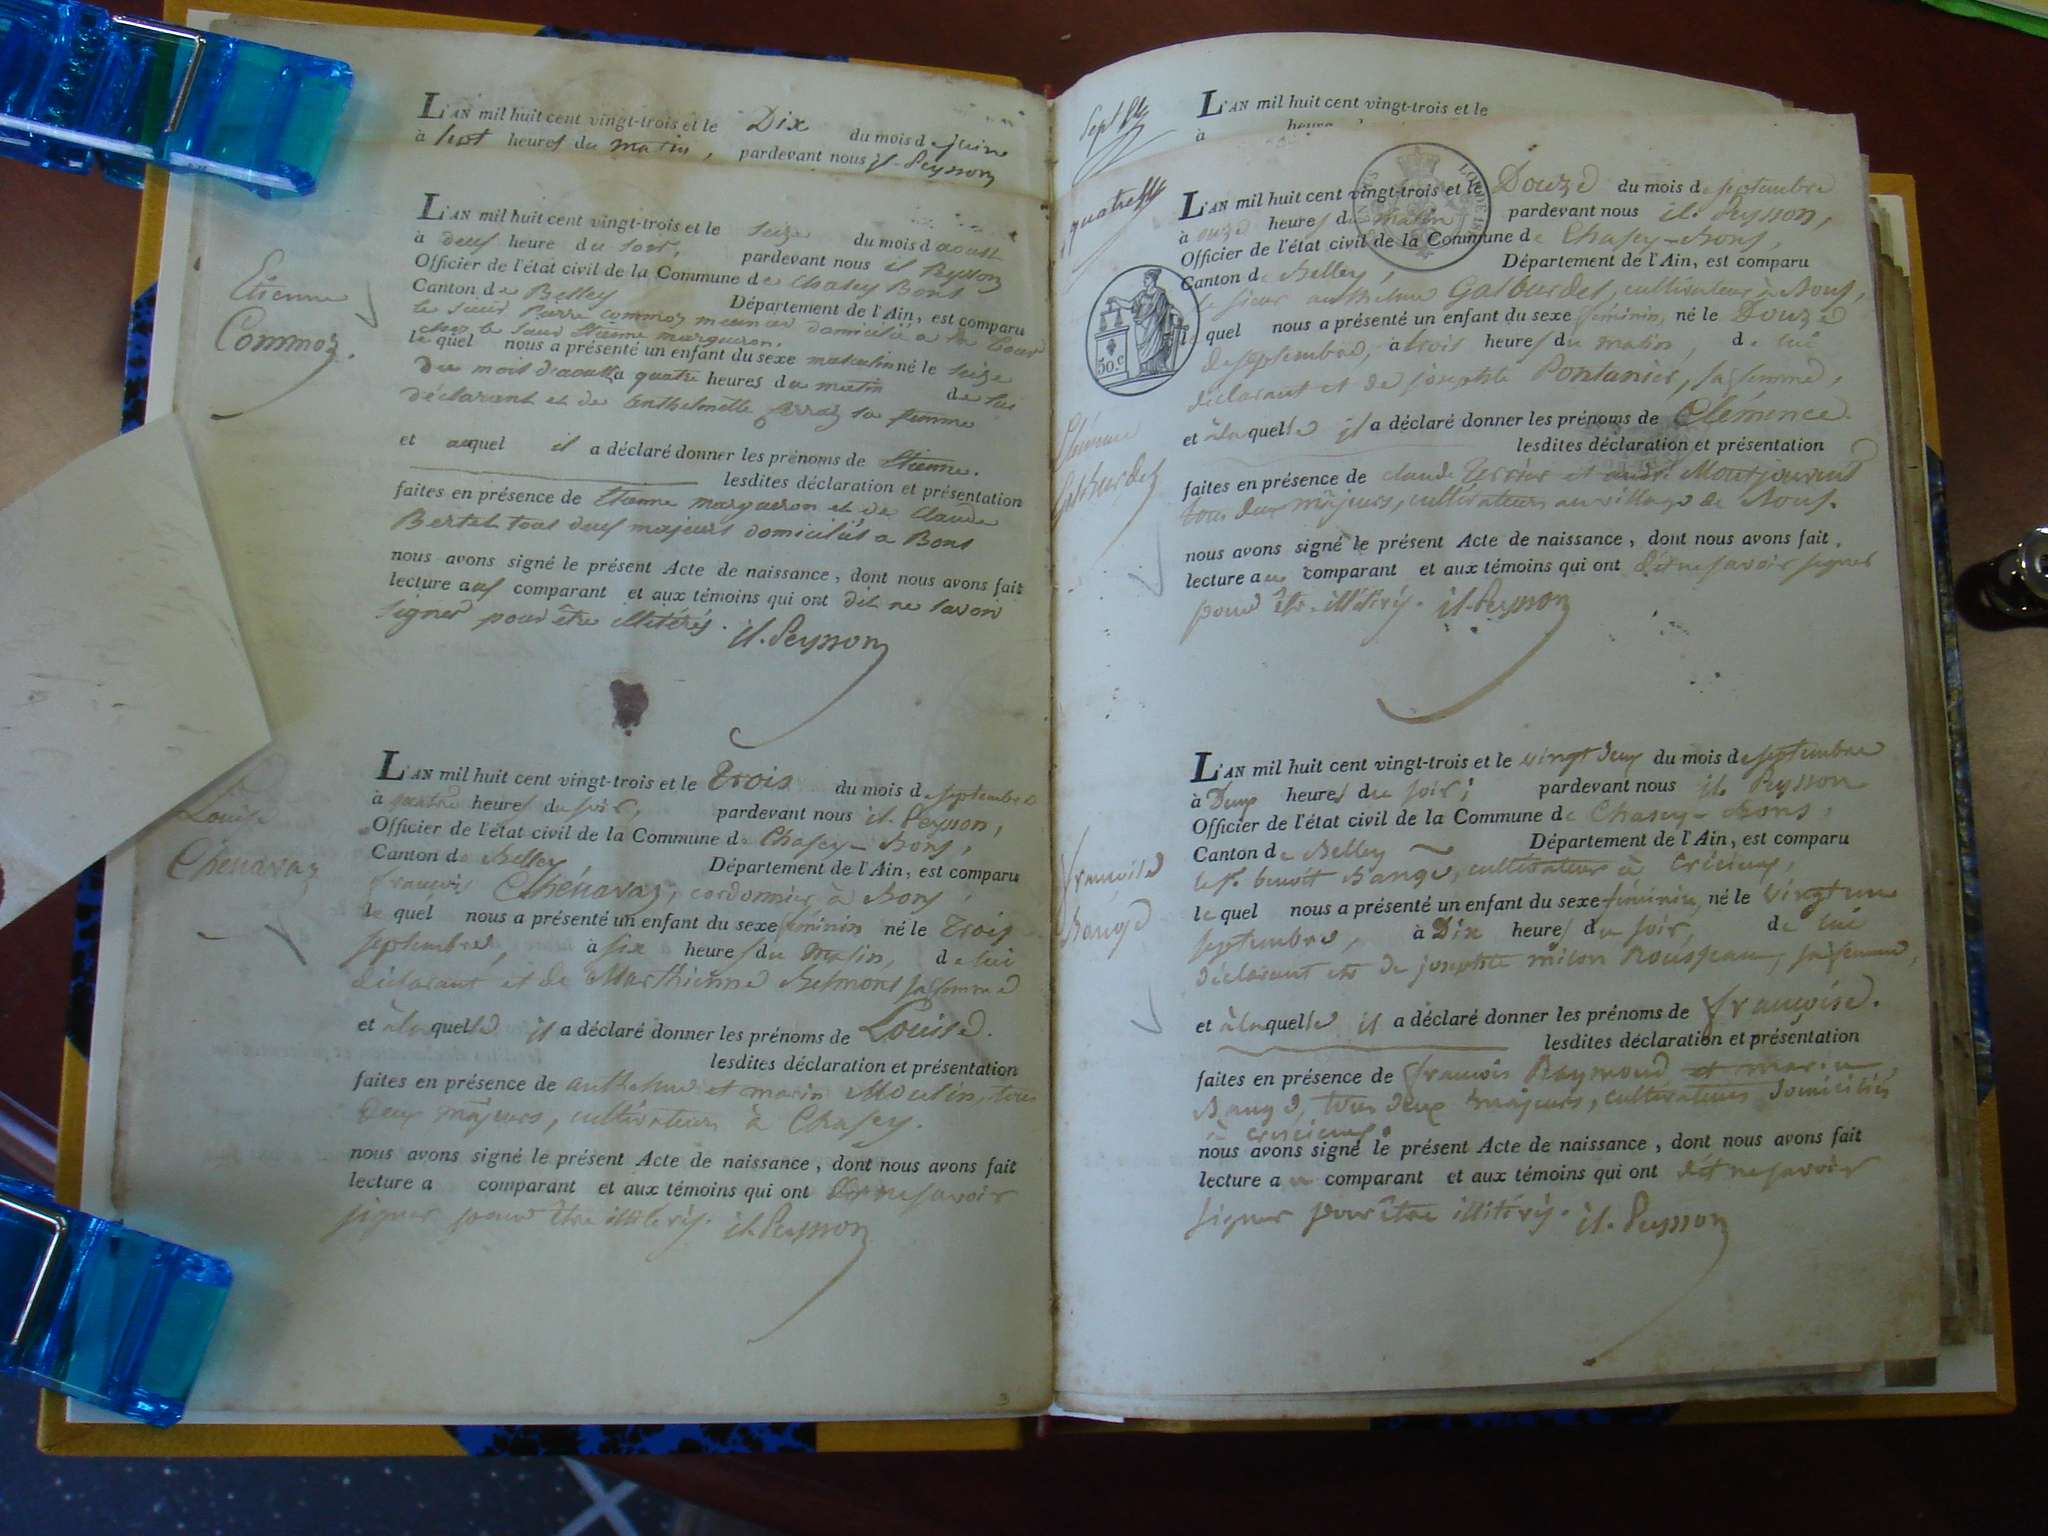 L'AN mil huit cent vingt-trois et le Dix du mois de juin
à sept heures du matin, pardevant nous jh. Peysson
Etienne
Commoz.
L'AN mil huit cent vingt-trois et le seize du mois d'aoust
à deux heure du soir, pardevant nous jh Peysson
Officier de l'état civil de la Commune de Chasey Bons
Canton de Belley Département de l'Ain, est comparu
le sieur Pierre Commoz meunier domicilié a la
le sieur Etienne margueron.
lequel nous a présenté un enfant du sexe masculin né le seize
du mois d'aoust a quatre heures du matin de lui
déclarant et de Enthelmette ferraz sa femme
et auquel il a déclaré donner les prénoms de Etienne.
lesdites déclaration et présentation
faites en présence de Etienne margueron et de Claude
Bertet tous deux majeurs domiciliés a Bons
nous avons signé le présent Acte de naissance, dont nous avons fait
lecture aux comparant et aux témoins qui ont dit ne savoir
signer pour être illitérés. jh. Peysson
Louise
Chenavaz
L'AN mil huit cent vingt-trois et le Trois du mois de septembre
à quatre heures du soir, pardevant nous jh. Peysson,
Officier de l'état civil de la Commune de Chasey-Bons,
Canton de Belley Département de l'Ain, est comparu
françois Chénavaz, cordonnier à Bons,
lequel nous a présenté un enfant du sexe féminin né le Trois
septembre, à six heures du matin, de lui
déclarant et de Marthienne Belmont sa femme
et à laquelle il a déclaré donner les prénoms de Louise.
lesdites déclaration et présentation
faites en présence de anthelme et marin Moulin, tous
deux majeurs, cultivateurs à Chasey.
nous avons signé le présent Acte de naissance, dont nous avons fait
lecture a comparant et aux témoins qui ont dit ne savoir
signer pour être illitérés. jh. Peysson
3
L'AN mil huit cent vingt-trois et le
à heures
quatre
50.c
L'AN mil huit cent vingt-trois et le Douze du mois de septembre
à onze heures du matin pardevant nous jh. Peysson,
Officier de l'état civil de la Commune de Chasey-Bons,
Canton de Belley, Département de l'Ain, est comparu
le sieur anthelme Galburdet, cultivateur à Bons,
lequel nous a présenté un enfant du sexe féminin, né le Douze
de septembre, à trois heures du matin, de lui
déclarant et de josephte Pontanier, sa femme,
et à laquelle il a déclaré donner les prénoms de Clémence.
lesdites déclaration et présentation
Clémence
Galburdet
faites en présence de claude Terrier et andré Montjouvent
tous deux majeurs, cultivateurs au village de Bons.
nous avons signé le présent Acte de naissance, dont nous avons fait
lecture au comparant et aux témoins qui ont dit ne savoir signer
pour être illitérés. jh. Peysson
françoise
Bange
L'AN mil huit cent vingt-trois et le vingt deux du mois de septembre
à Deux heures du soir; pardevant nous jh. Peysson
Officier de l'état civil de la Commune de Chasey-Bons,
Canton de Belley Département de l'Ain, est comparu
le sr. benoît Bange, cultivateur à
lequel nous a présenté un enfant du sexe féminin, né le vingt une
septembre, à Dix heures du soir, de lui
déclarant et de josephte milon Rousseau, sa femme,
et à laquelle il a déclaré donner les prénoms de françoise.
lesdites déclaration et présentation
faites en présence de françois Raymond et marin
Bange, tous deux majeurs, cultivateurs domiciliés
nous avons signé le présent Acte de naissance, dont nous avons fait
lecture au comparant et aux témoins qui ont dit ne savoir
signer pour être illitérés. jh. Peysson